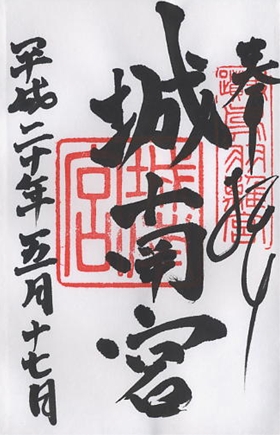 奉拝
城南宮
城南宮
平成二十年五月十七日